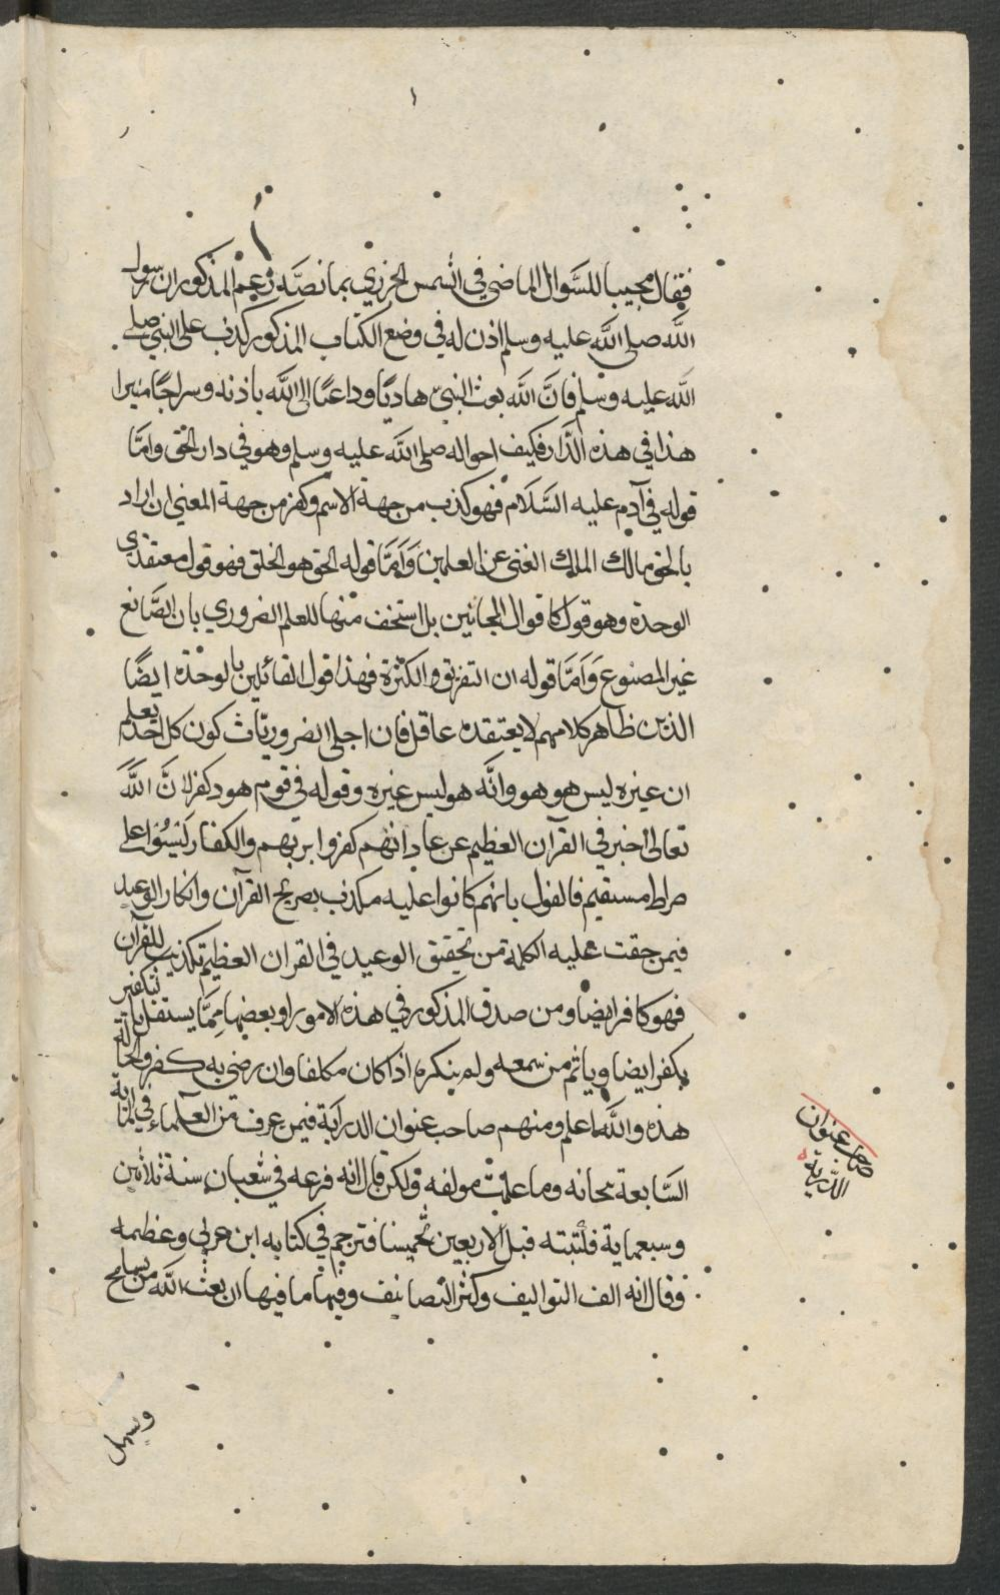 فقال مجيبا للسَّوال الماضي في الشمس الجزري بما نصَّه زعم المذكور ان رسول
الله صلى الله عليه وسلم اذن له في وضع الكتاب المذكور كذب على النبي صلى
الله عليه وسلم فانَّ الله بعث النبي هاديًا وداعيًا الى الله باذنه وسراجًا منيرا
هذا في هذه الدَّار فكيف احواله صلى الله عليه وسلم وهو في دار الحق وامَّا
قوله في آدم عليه السَّلام فهو كذب من جهة الاسم وكفر من جهة المعنى ان اراد
بالحق مالك الملك الغنى عن العلمين وَامَّا قوله الحق هو الخلق فهو قول معتقدي
الوحدة وهو قول كاقوال المجانين بل استخف منها للعلم الضروري بان الصَّانع
غير المصنوع وَامَّا قوله ان التفرق والكثرة فهذا قول القائلين بالوحدة ايضًا
الذين ظاهر كلامهم لا يعتقده عاقل فان اجلى الضروريات كون كل احد يعلم
ان غيره ليس هو هو وانَّه هو ليس غيره وقوله في قوم هود كفر لانَّ الله
تعالى أخبر في القرآن العظيم عن عاد انهم كفروا بربهم والكفار ليسُوا على
صراط مستقيم فالقول بانهم كانوا عليه مكذب بصريح القرآن وانكار الوعيد
فيمن حقت عليه الكلمة من تحقيق الوعيد في القران العظيم تكذيب للقرآن
فهو كافر ايضا ومن صدق المذكور في هذه الامور او بعضها مِمَّا يستقل بالتكفير
يكفر ايضا وياثم من سمعه ولم ينكره اذا كان مكلفا وان رضي به كفر والحالة
هذه والله اعلم ومنهم صاحب عنوان الدراية فيمن عرف من العلماء في الماية
السَّابعة بجانه وما علمت مولفه ولكن قال انه فرغه في شعبان سنة ثلاثين
وسبعماية فاثبته قبل الاربعين تخمينا فترجم في كتابه ابن عربي وعظمه
وقال انه الف التواليف وكثر التصانيف وفيها ما فيها ان بعث الله من يسامح
صاحب عنوان
الدراية
وسهل